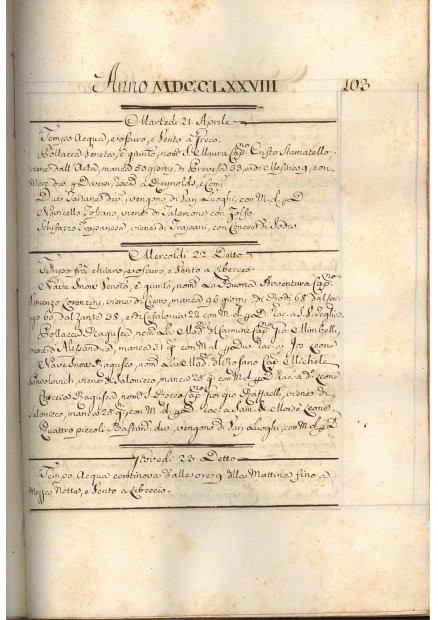 Anno MDCCLXXVIII 103
Martedi 21 Aprile
Tempo Acqua, e oscuro, e Vento a Greco.
Pollacca Veneta, e quinto, nom.ª S. Maura Cap.no Cristo Stamatello,
viene dall' Arta, manca 50 giorni, di Prevesa 33, e di Messina 9, con
Merc. duo, q D, racc.a a Reynolds, e Comp.
Due Tartane duo, vengono di Vari Luoghi, con M. d. q D
Navicello Toscano, viene di Talamone con Zolfo
Schifazzo Trapanese, viene di Trapani, con Cenere di Soda.
Mercoldi 22 Detto
Tempo frà chiaro, e oscuro, e Vento a Libeccio.
Nave Snow Veneto, e quinto, nom. La Buona Avventura Cap.no
Vincenzo Lorenzini, viene di Cipro, manca 96 giorni, di Rodi 68
60, dal Zante 38, e di Cefalonia 22 con M. d. q D. rac.a a
Pollacca Ragusea, nom. La Mad.a di Carmine Cap.no Gio. Mimbelli,
viene d'Alessandria, manca 31 g. con M. d. q D rac. a Jos. Leone
Nave Snow Raguseo, nom. La Mad.a di Rosario Cap. Michele
Pavolovich, viene di Salonicco, manca 25 g. con M. d. q D. rac. a D. Leone
Raguseo, nom. S. Rocco Cap.no Giorgio Raffaelli, viene di
Salonicco, manca 25 g. con M. d. q D. rac. a Sam. e Moisè Leone
Quattro piccoli Bastim. duo, vengono di Vari Luoghi, con M. d. q D
Giovedi 23 Detto
Tempo Acqua continova dalle ore 9 della Mattina fino a
Mezza Notte, e Vento a Libeccio.